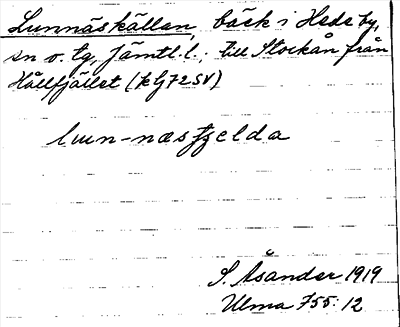 Lunnäskällan, bäck i Hede by,
sn o. tg, Jämtl. l.; till Stockån från
Hållfjället (kbg 72 SV)
lun-næsȼelda
S. Åsander 1919
Ulma 755:12